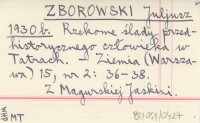 ZBOROWSKI Juljusz
1930 b. Rzekome ślady przed-
historycznego człowieka w
Tatrach. – Ziemia (Warsza-
wa) 15, nr 2: 36-38.
Z Magurskiej Jaskini.
MT